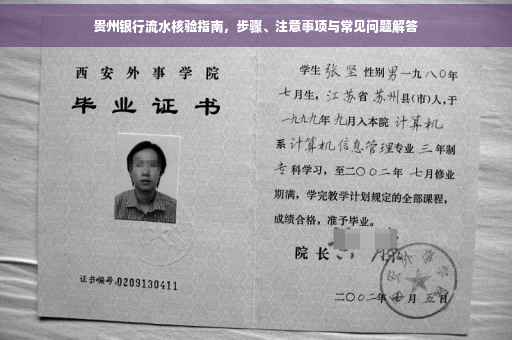 贵州银行流水核验指南，步骤、注意事项与常见问题解答
西安外事学院
毕业证书
证书编号:0209130411
学生 张坚 性别 男 一九八〇年
七月生，江苏省 苏州 县(市)人，于
一九九九年 九月入本院 计算机
系 计算机信息管理 专业 三 年制
专 科学习，至二〇〇二年 七月修业
期满，学完教学计划规定的全部课程，
成绩合格，准予毕业。
院长
二〇〇二年 七月 五日